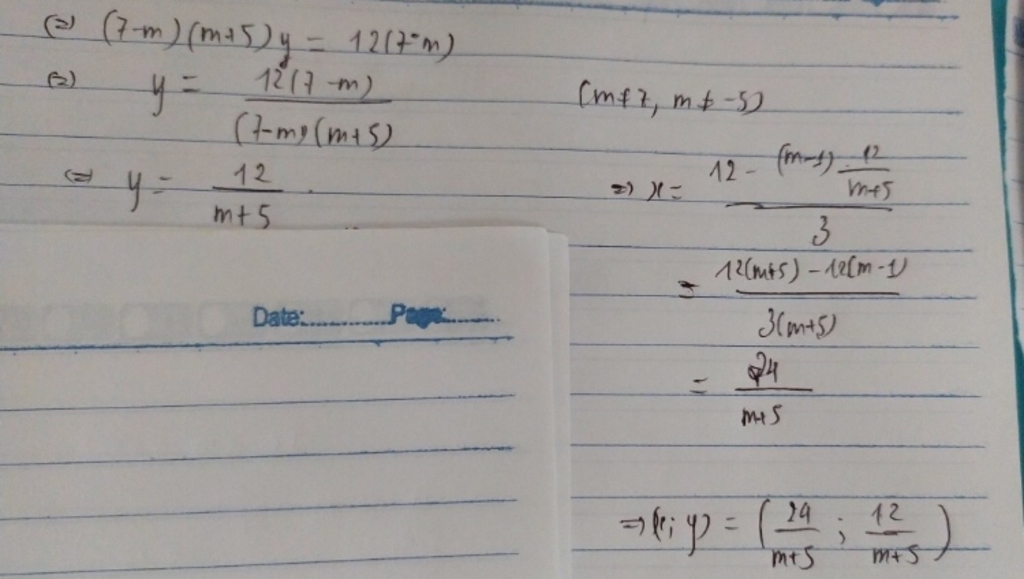 (=) (7-m)(m+5)y = 12(7-m)
(=) y = 12(7-m) / (7-m)(m+5) (m≠7, m≠-5)
(=) y = 12 / m+5
=) x = 12 - (m-1) . 12/m+5 / 3
= 12(m+5) - 12(m-1) / 3(m+5)
= 24 / m+5
Date:............Page:........
=) (x; y) = (24/m+5 ; 12/m+5)